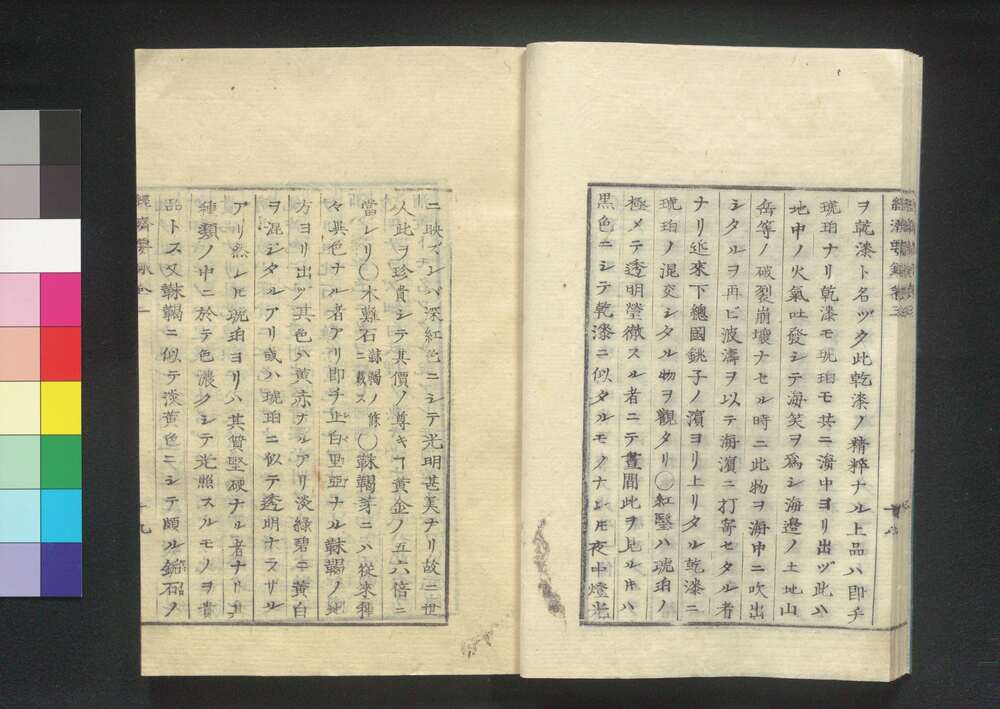 ヲ乾漆ト名ヅク此乾漆ノ精粹ナル上品ハ即チ
琥珀ナリ乾漆モ琥珀モ共ニ海中ヨリ出ヅ此ハ
地中ノ火氣吐發シテ海笑ヲ爲シ海邊ノ土地山
岳等ノ破裂崩壞ナセル時ニ此物ヲ海中ニ吹出
シタルヲ再ビ波濤ヲ以テ海濱ニ打寄セタル者
ナリ近來下總國銚子ノ濱ヨリ上リタル乾漆ニ
琥珀ノ混交シタル物ヲ觀タリ〇紅鑿ハ琥珀ノ
極メテ透明瑩徹スル者ニテ晝間此ヲ見ル片ハ
黒色ニシテ乾漆ニ似タルモノナレ𪜈夜中燈光
ニ映ズレバ深紅色ニシテ光明甚美ナリ故ニ世
人此ヲ珍貴シテ其價ノ尊キヿ黄金ノ五六倍ニ
當レリ〇木難石ニ載ス靺鞨ノ條〇靺鞨芽ニハ從來種
々異色ナル者アリ即チ止白里亞ナル靺鞨ノ地
方ヨリ出ヅ其色ハ黄赤ナルアリ淡綠碧ニ黄白
ヲ混ジタルアリ或ハ琥珀ニ似テ透明ナラザル
アリ然レ𪜈琥珀ヨリハ其質堅硬ナル者ナリ其
種類ノ中ニ於テ色濃クシテ光照スルモノヲ貴
品トス又靺鞨ニ似テ淡黄色ニシテ頗ル鍮石ノ